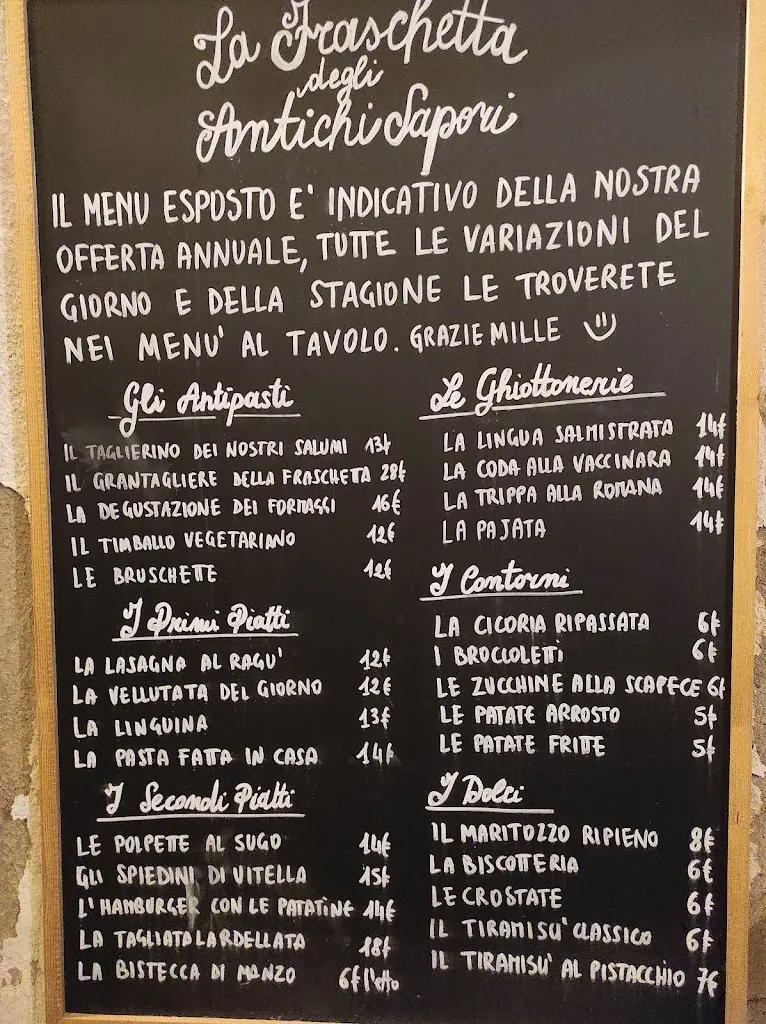 La Fraschetta
degli
Antichi Sapori
IL MENU ESPOSTO E' INDICATIVO DELLA NOSTRA
OFFERTA ANNUALE, TUTTE LE VARIAZIONI DEL
GIORNO E DELLA STAGIONE LE TROVERETE
NEI MENU' AL TAVOLO. GRAZIE MILLE
Gli Antipasti
IL TAGLIERINO DEI NOSTRI SALUMI 13€
IL GRANTAGLIERE DELLA FRASCHETA 28€
LA DEGUSTAZIONE DEI FORMAGGI 16€
IL TIMBALLO VEGETARIANO 12€
LE BRUSCHETTE 12€
I Primi Piatti
LA LASAGNA AL RAGU' 12€
LA VELLUTATA DEL GIORNO 12€
LA LINGUINA 13€
LA PASTA FATTA IN CASA 14€
I Secondi Piatti
LE POLPETTE AL SUGO 14€
GLI SPIEDINI DI VITELLA 15€
L'HAMBURGER CON LE PATATINE 14€
LA TAGLIATA LARDELLATA 18€
LA BISTECCA DI MANZO 6€ l'etto
Le Ghiottonerie
LA LINGUA SALMISTRATA 14€
LA CODA ALLA VACCINARA 14€
LA TRIPPA ALLA ROMANA 14€
LA PAJATA 14€
I Contorni
LA CICORIA RIPASSATA 6€
I BROCCOLETTI 6€
LE ZUCCHINE ALLA SCAPECE 6€
LE PATATE ARROSTO 5€
LE PATATE FRITTE 5€
I Dolci
IL MARITOZZO RIPIENO 8€
LA BISCOTTERIA 6€
LE CROSTATE 6€
IL TIRAMISU' CLASSICO 6€
IL TIRAMISU' AL PISTACCHIO 7€